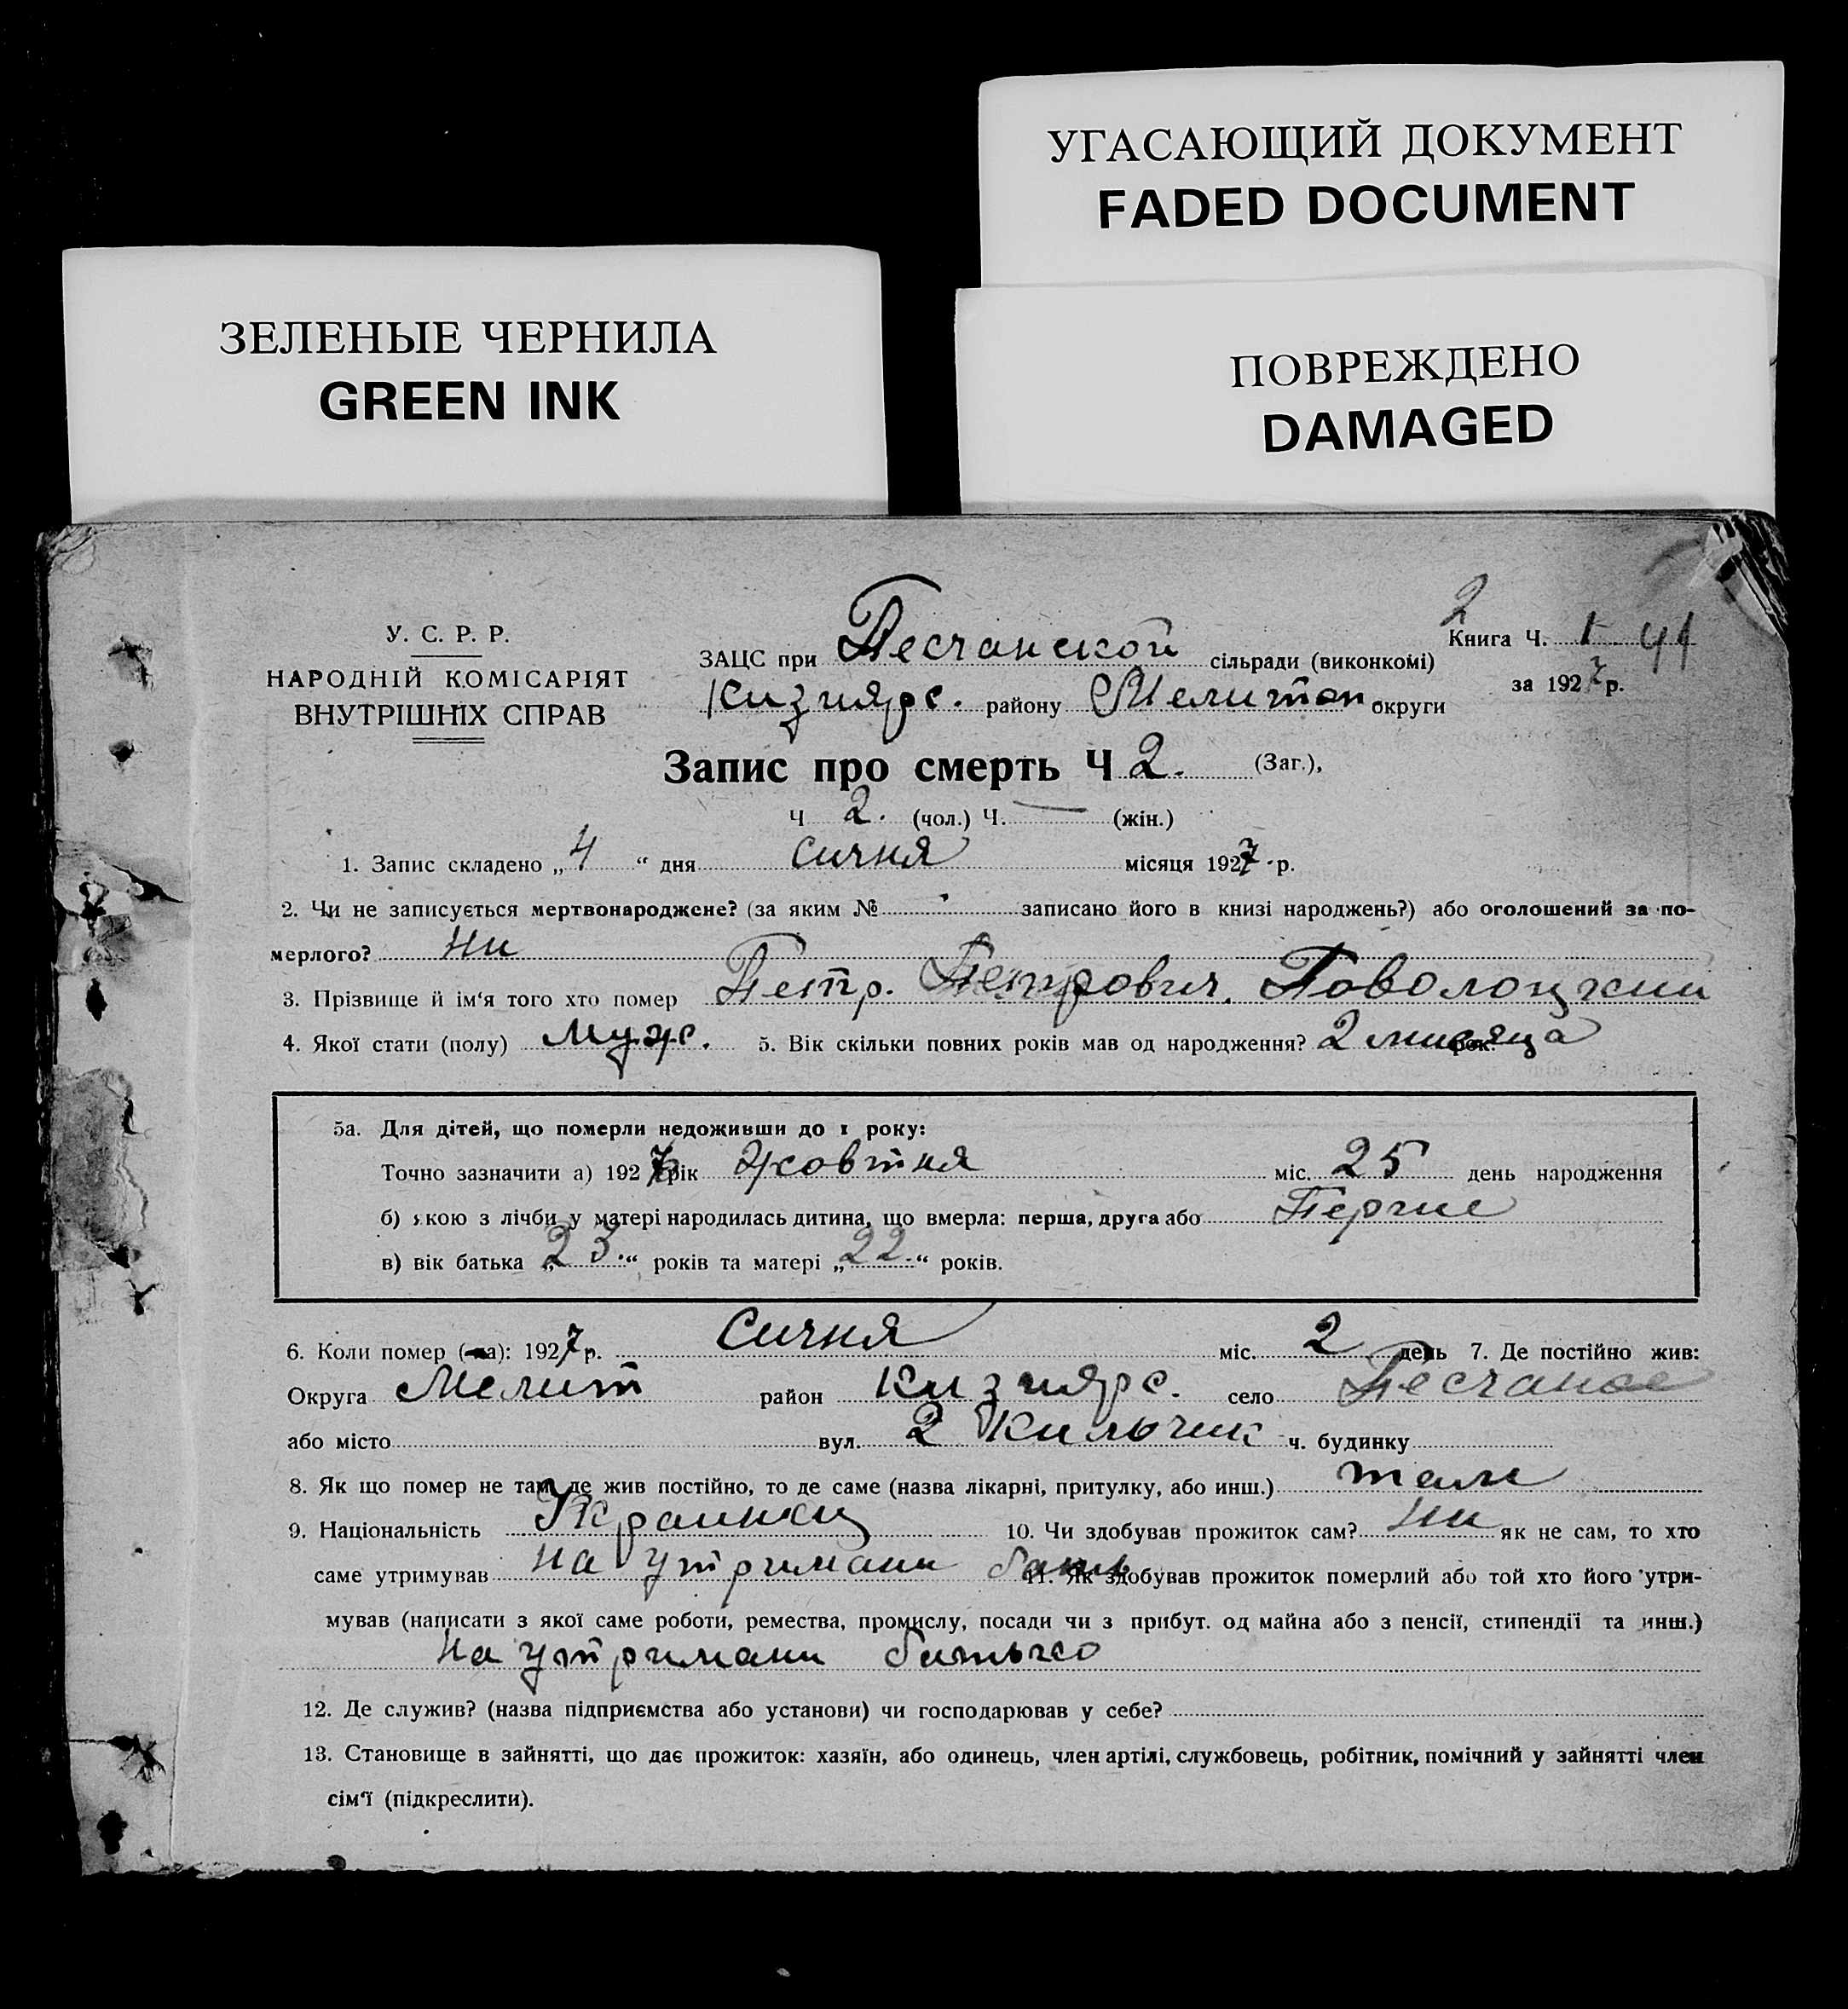 УГАСАЮЩИЙ ДОКУМЕНТ
FADED DOCUMENT
ЗЕЛЕНЫЕ ЧЕРНИЛА
GREEN INK
ПОВРЕЖДЕНО
DAMAGED
2
У. С. Р. Р.
НАРОДНІЙ КОМІСАРІЯТ
ВНУТРІШНІХ СПРАВ
Книга Ч. 1 41
за 1927 р.
ЗАЦС при Песчанской сільради (виконкомі)
Кизиярс. району Мелитоп округи
Запис про смерть Ч 2. (Заг.),
Ч 2. (чол.) Ч. — (жін.)
1. Запис складено „4 “ дня сичня місяця 1927 р.
2. Чи не записується мертвонароджене? (за яким № записано його в книзі народжень?) або оголошений за по-
мерлого? ни
3. Прізвище й ім‘я того хто помер Петр. Петрович. Поволоцкий
4. Якої стати (полу) Мужс. 5. Вік скільки повних років мав од народження? 2 мисяца рок.
5а. Для дітей, що померли недоживши до 1 року:
Точно зазначити а) 192 рік Жовтня міс. 25 день народження
б) якою з лічби у матері народилась дитина, що вмерла: перша, друга або
в) вік батька „23.“ років та матері „22.“ років.
6. Коли помер (-ла): 1927 р. Сичня міс. 2 день 7. Де постійно жив:
Округа Мелит район Кизиярс. село Песчаное
або місто вул. 2 ч. будинку
8. Як що помер не там, де жив постійно, то де саме (назва лікарні, притулку, або инш.) там
9. Національність Украинец 10. Чи здобував прожиток сам? ни як не сам, то хто
саме утримував на утримани батьк 11. Як здобував прожиток померлий або той хто його утри-
мував (написати з якої саме роботи, ремества, промислу, посади чи з прибут. од майна або з пенсії, стипендії та инш.)
на утримани батько
12. Де служив? (назва підприємства або установи) чи господарював у себе?
13. Становище в зайнятті, що дає прожиток: хазяїн, або одинець, член артілі, службовець, робітник, помічний у зайнятті член
сім‘ї (підкреслити).